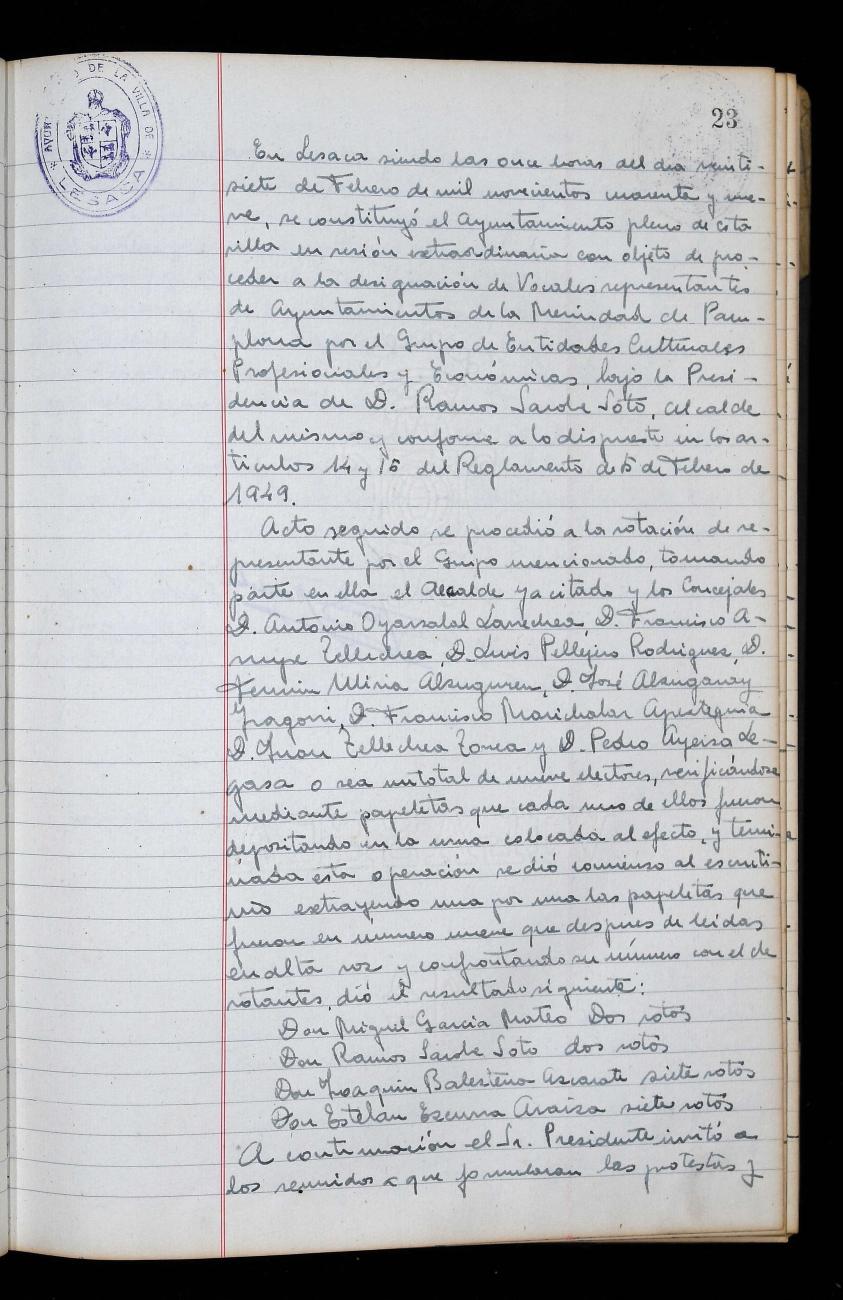 23
DE LA VILLA DE
LESACA
En Lesaca siendo las once horas del dia veinti-
siete de Febrero de mil novecientos cuarenta y nue-
ve, se constituyó el Ayuntamiento pleno de esta
villa en sesión extraordinaria con objeto de pro-
ceder a la designación de Vocales representantes
de Ayuntamientos de la Merindad de Pam-
plona por el Grupo de Entidades Culturales
Profesionales y Económicas, bajo la Presi-
dencia de D. Ramos Sarobe Soto, alcalde
del mismo y conforme a lo dispuesto en los ar-
ticulos 14 y 15 del Reglamento de 5 de Febrero de
1949.
Acto seguido se procedió a la votación de re-
presentante por el Grupo mencionado, tomando
parte en ella el Alcalde ya citado y los Concejales
D. Antonio Oyarzabal Lanechea, D. Francisco A-
Tellechea, D. Luis Pellejero Rodriguez, D.
Fermin Miria Alzuguren, D. José Alzugaray
Yragorri, D. Francisco Marichalar Apesteguia
D. Juan Tellechea Zonea y D. Pedro Apeiza Le-
gasa o sea un total de nueve electores, verificándose
mediante papeletas que cada uno de ellos fueron
depositando en la urna colocada al efecto, y termi-
nada esta operación se dió comienzo al escruti-
nio extrayendo una por una las papeletas que
fueron en número nueve que despues de leidas
en alta voz y confrontando su número con el de
votantes, dió el resultado siguiente:
Don Miguel Garcia Mateo Dos votos
Don Ramos Sarobe Soto dos votos
Don Joaquin Balestena Azcarate siete votos
Don Esteban Ezcurra Araiza siete votos
A continuación el Sr. Presidente invitó a
los reunidos a que formularan las protestas y